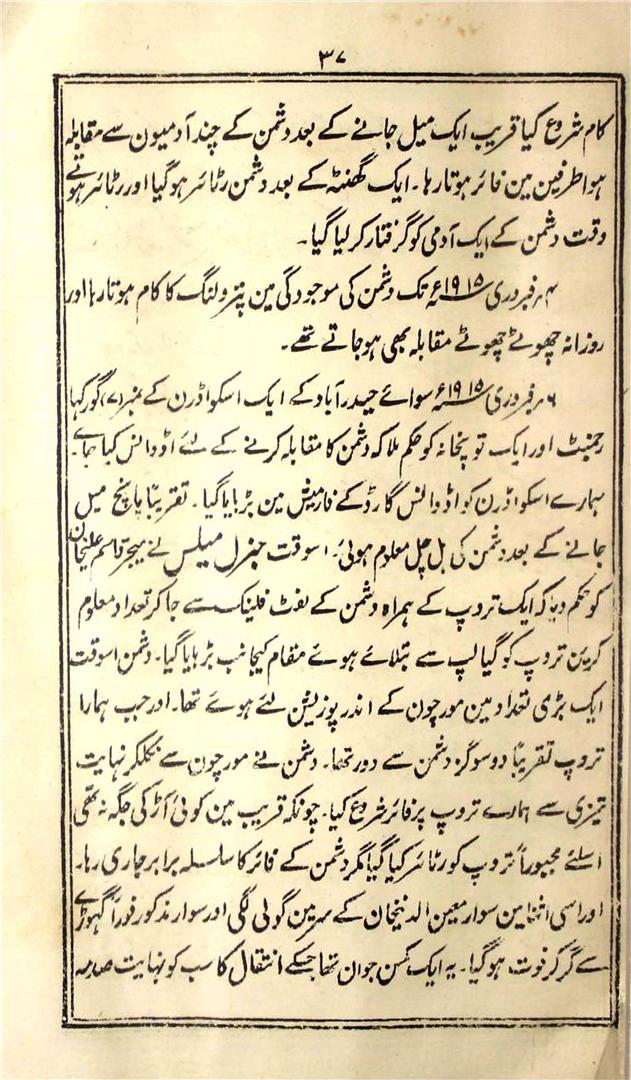 ۳۷
کام شروع کیا قریب ایک میل جانے کے بعد دشمن کے چند آدمیون سے مقابلہ
ہوا طرفین مین فائر ہوتا رہا۔ ایک گھنٹہ کے بعد دشمن رٹائر ہوگیا اور رٹائر ہوتے
وقت دشمن کے ایک آدمی کو گرفتار کر لیا گیا۔
۴؍ فبروری ۱۹۱۵ء تک دشمن کی موجودگی مین پترولنگ کا کام ہوتا رہا اور
روزانہ چھوٹے چھوٹے مقابلہ بھی ہوجاتے تھے۔
۶؍ فبروری ۱۹۱۵ء سوائے حیدرآباد کے ایک اسکواڈرن کے نمبر (۷) گورکہا
رجمنٹ اور ایک توپخانہ کو حکم ملا کہ دشمن کا مقابلہ کرنے کے لئے اڈوانس کیا جاے۔
ہمارے اسکواڈرن کو اڈوانس گارڈ کے فارمیشن مین بڑہایا گیا۔ تقریباً پانچ میل
جانے کے بعد دشمن کی ہل چل معلوم ہوئی۔ اسوقت جنرل میلس نے میجر قاسم علیخان
کو حکم دیا کہ ایک تروپ کے ہمراہ دشمن کے لفٹ فلینک سے جا کر تعداد معلوم
کرین تروپ کو گیالپ سے بتلائے ہوئے مقام کیجانب بڑہایا گیا۔ دشمن اسوقت
ایک بڑی تعداد مین مورچون کے اندر پوزیشن لئے ہوے تھا۔ اور جب ہمارا
تروپ تقریباً دوسو گز دشمن سے دور تھا۔ دشمن نے مورچون سے نکلکر نہایت
تیزی سے ہمارے تروپ پر فائر شروع کیا۔ چونکہ قریب مین کوئی آڑ کی جگہ نہ تھی
اسلئے مجبوراً تروپ کو رٹائر کیا گیا مگر دشمن کے فائر کا سلسلہ برابر جاری رہا۔
اور اسی اثنا مین سوار معین الدینخان کے سر مین گولی لگی اور سوار مذکور فوراً گہوڑے
سے گر کر فوت ہوگیا۔ یہ ایک کمسن جوان تھا جسکے انتقال کا سب کو نہایت صدمہ